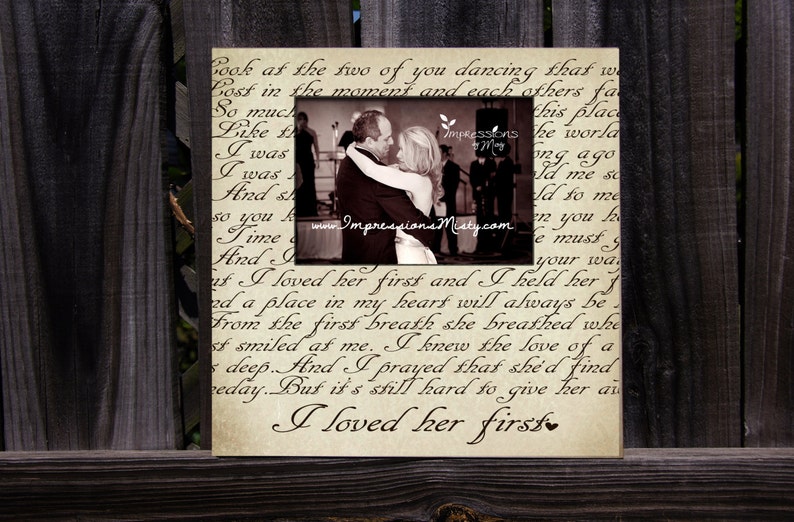 Look at the two of you dancing that w
Lost in the moment and each others fa
So much this place
Like th the world
I was ong ago
I was old me so
And sh ld to me
so you k en you h
Time e must g
And I your wa
ut I loved her first and I held her f
nd a place in my heart will always be
From the first breath she breathed whe
st smiled at me. I knew the love of a
s deep.And I prayed that she'd find
meday..But it's still hard to give her aw
I loved her first
Impressions
by Misty
www.ImpressionsMisty.com